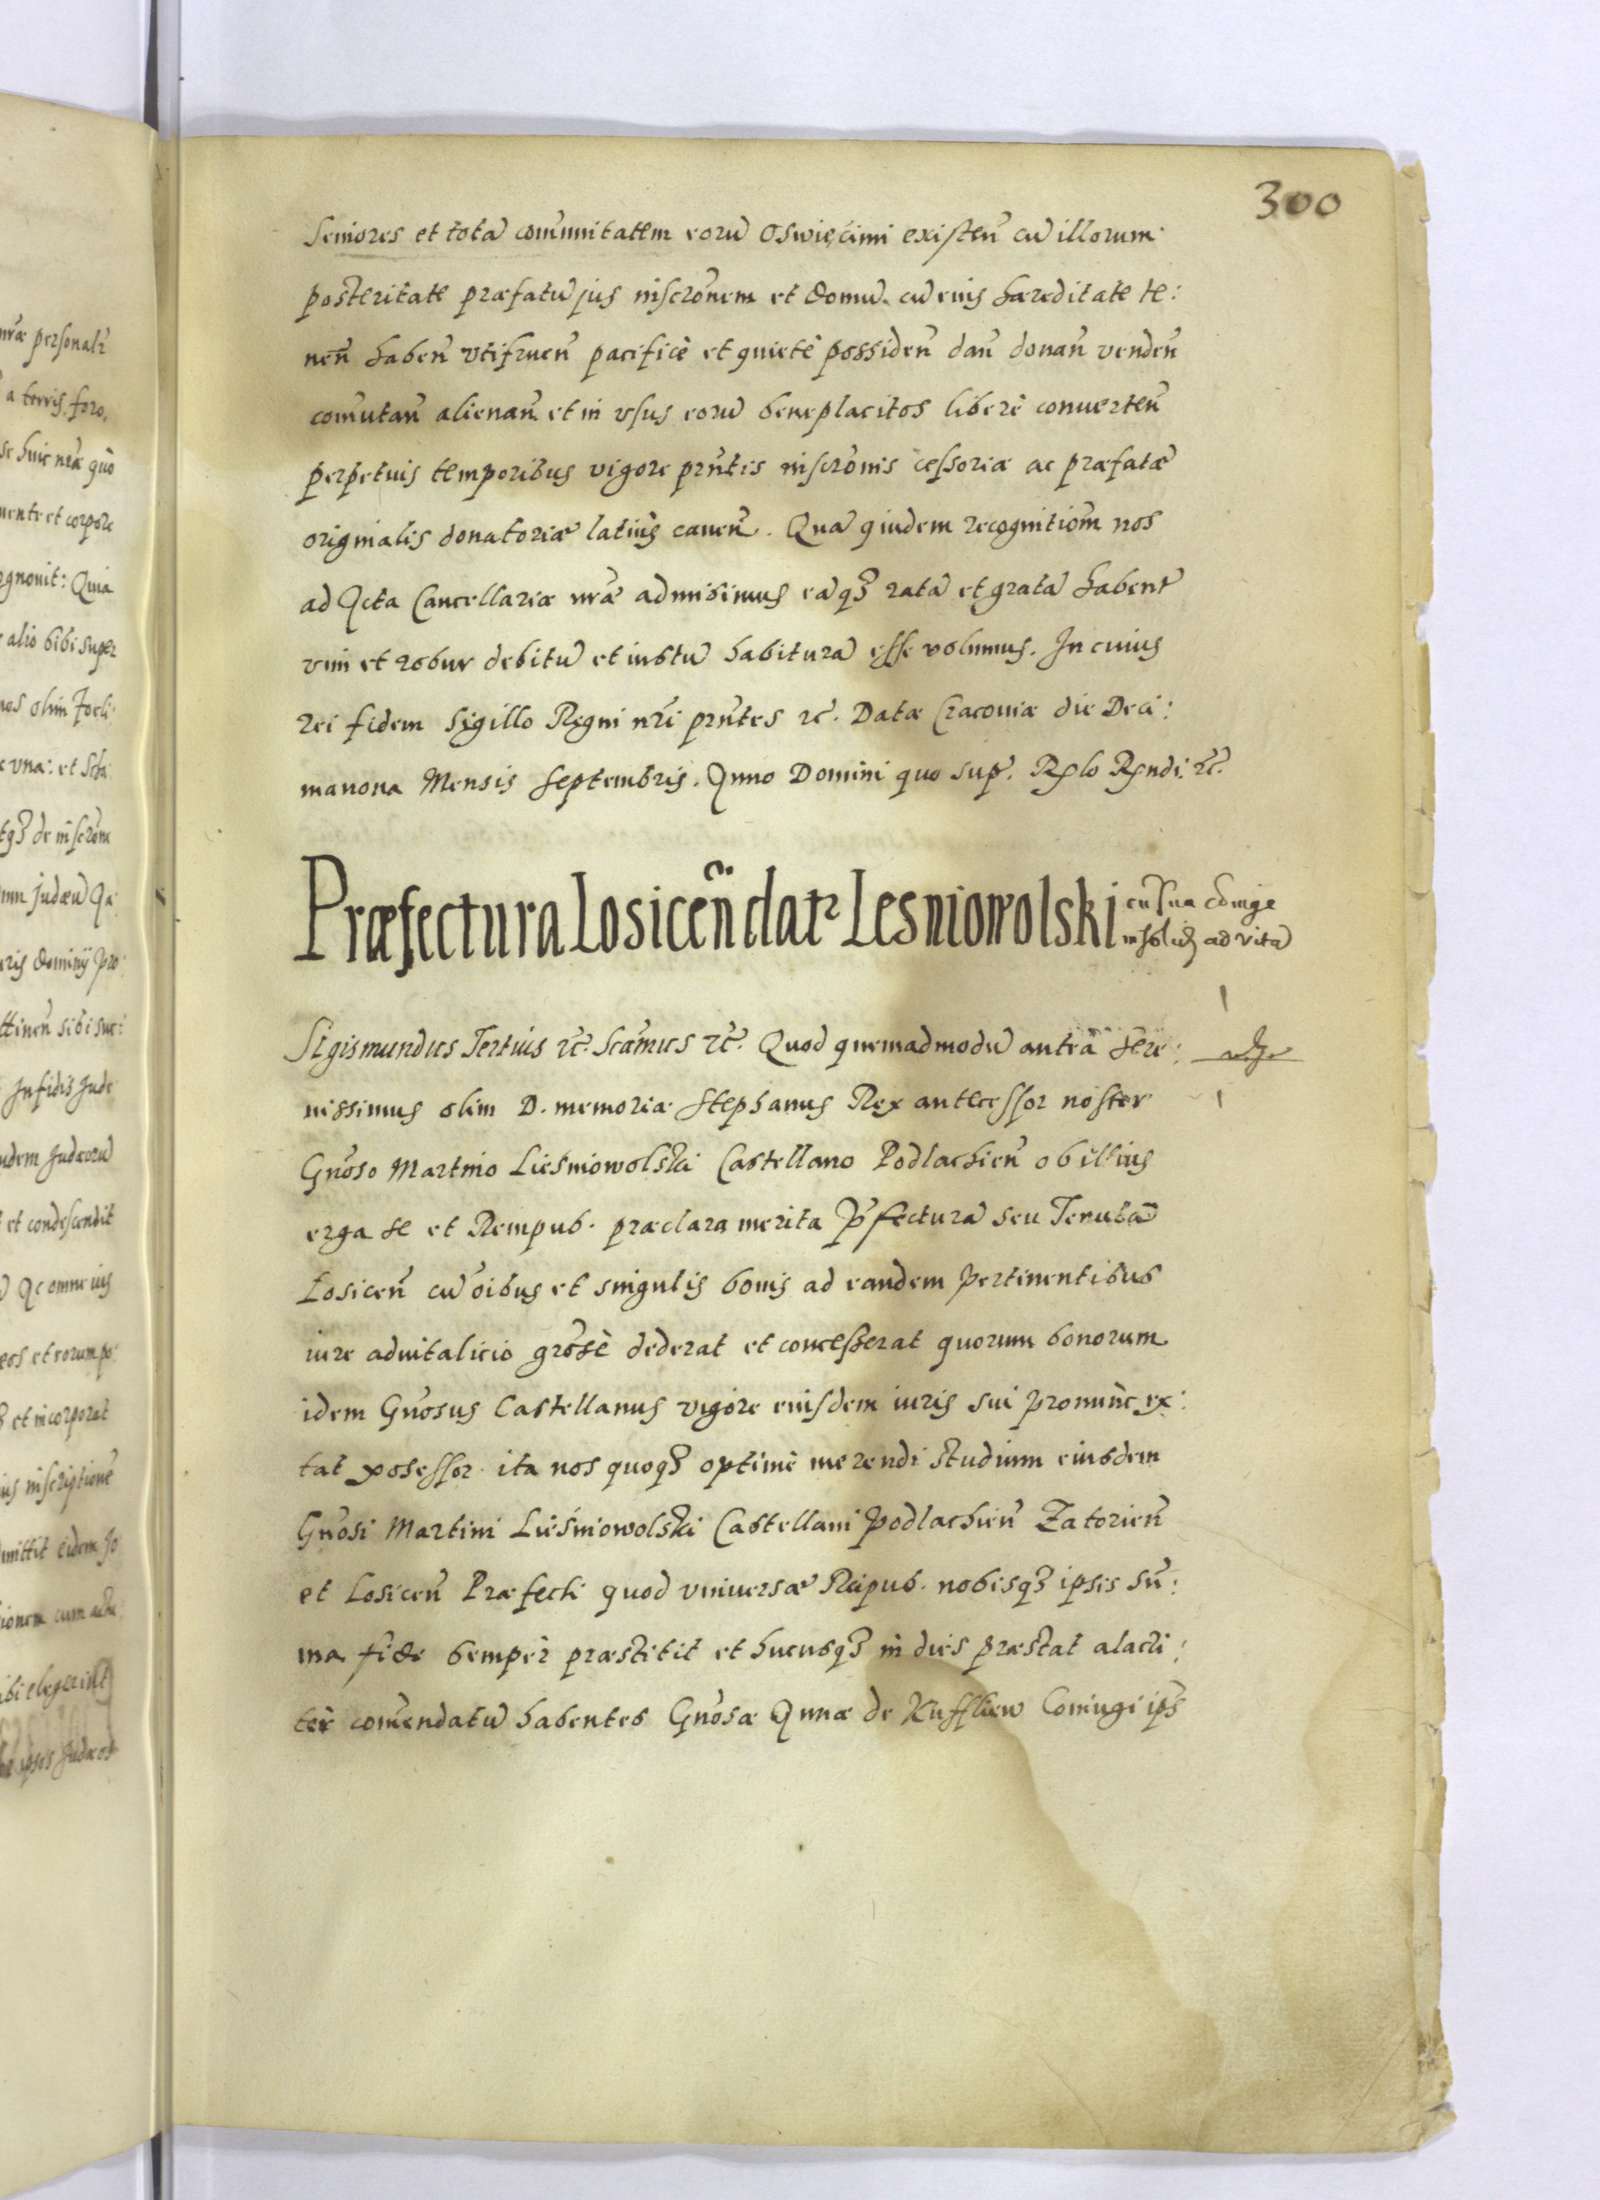 300
Seniores et totã com̃unitatem eorũ Oswięcimi existeñ cũ illorum
posteritate præfatũ jus inscrõnem et domũ cũ eius hæreditate te:
neñ habeñ vtifrueñ pacificè et quietè possideñ dañ donañ vendeñ
com̃utañ alienañ et in vsus eorũ beneplacitos liberè conuerteñ
perpetuis temporibus vigore pr̃ntis inscrõnis cessoriæ ac præfatæ
originalis donatoriæ latius caueñ. Quã quidem recognitiom̃ nos
ad Acta Cancellariæ nr̃æ admisimus eãq3 ratã et gratã habent̃
vim et robur debitũ et iustũ habiturã esse volumus. In cuius
rei fidem Sigillo Regni nr̃i pr̃ntes rc̃. Datæ Cracoviæ die Deci:
manona Mensis Septembris. Anno Domini quo sup. Rglo Rgndi. rc̃.
Præfectura Losiceñ datr Lesniowolski cũ sua cõiuge
in solid̃ ad vitã
Sigismundus Tertius rc̃. Scãmus rc̃. Quod quemadmodũ anteà Sere:
nissimus olim D. memoriæ Stephanus Rex antecessor noster
Gñoso Martino Liesniowolski Castellano Podlachieñ ob illius
erga se et Rempub. præclara merita P̃fecturã seu Tenutã
Losiceñ cũ oĩbus et singulis bonis ad eandem pertinentibus
iure aduitalicio grõsè dederat et concesserat quorum bonorum
idem Gñosus Castellanus vigore eiusdem iuris sui pronunc ex:
tat possessor. ita nos quoq3 optimè merendi studium eiusdem
Gñosi Martini Liesniowolski Castellani Podlachieñ Zatorieñ
et Losiceñ Præfecti quod vniversæ Reipub. nobisq3 ipsis sũ:
ma fide semper præstitit et hucusq3 in dies præstat alacri:
ter com̃endatũ habentes Gñosæ Annæ de Kufflew Coniugi ips